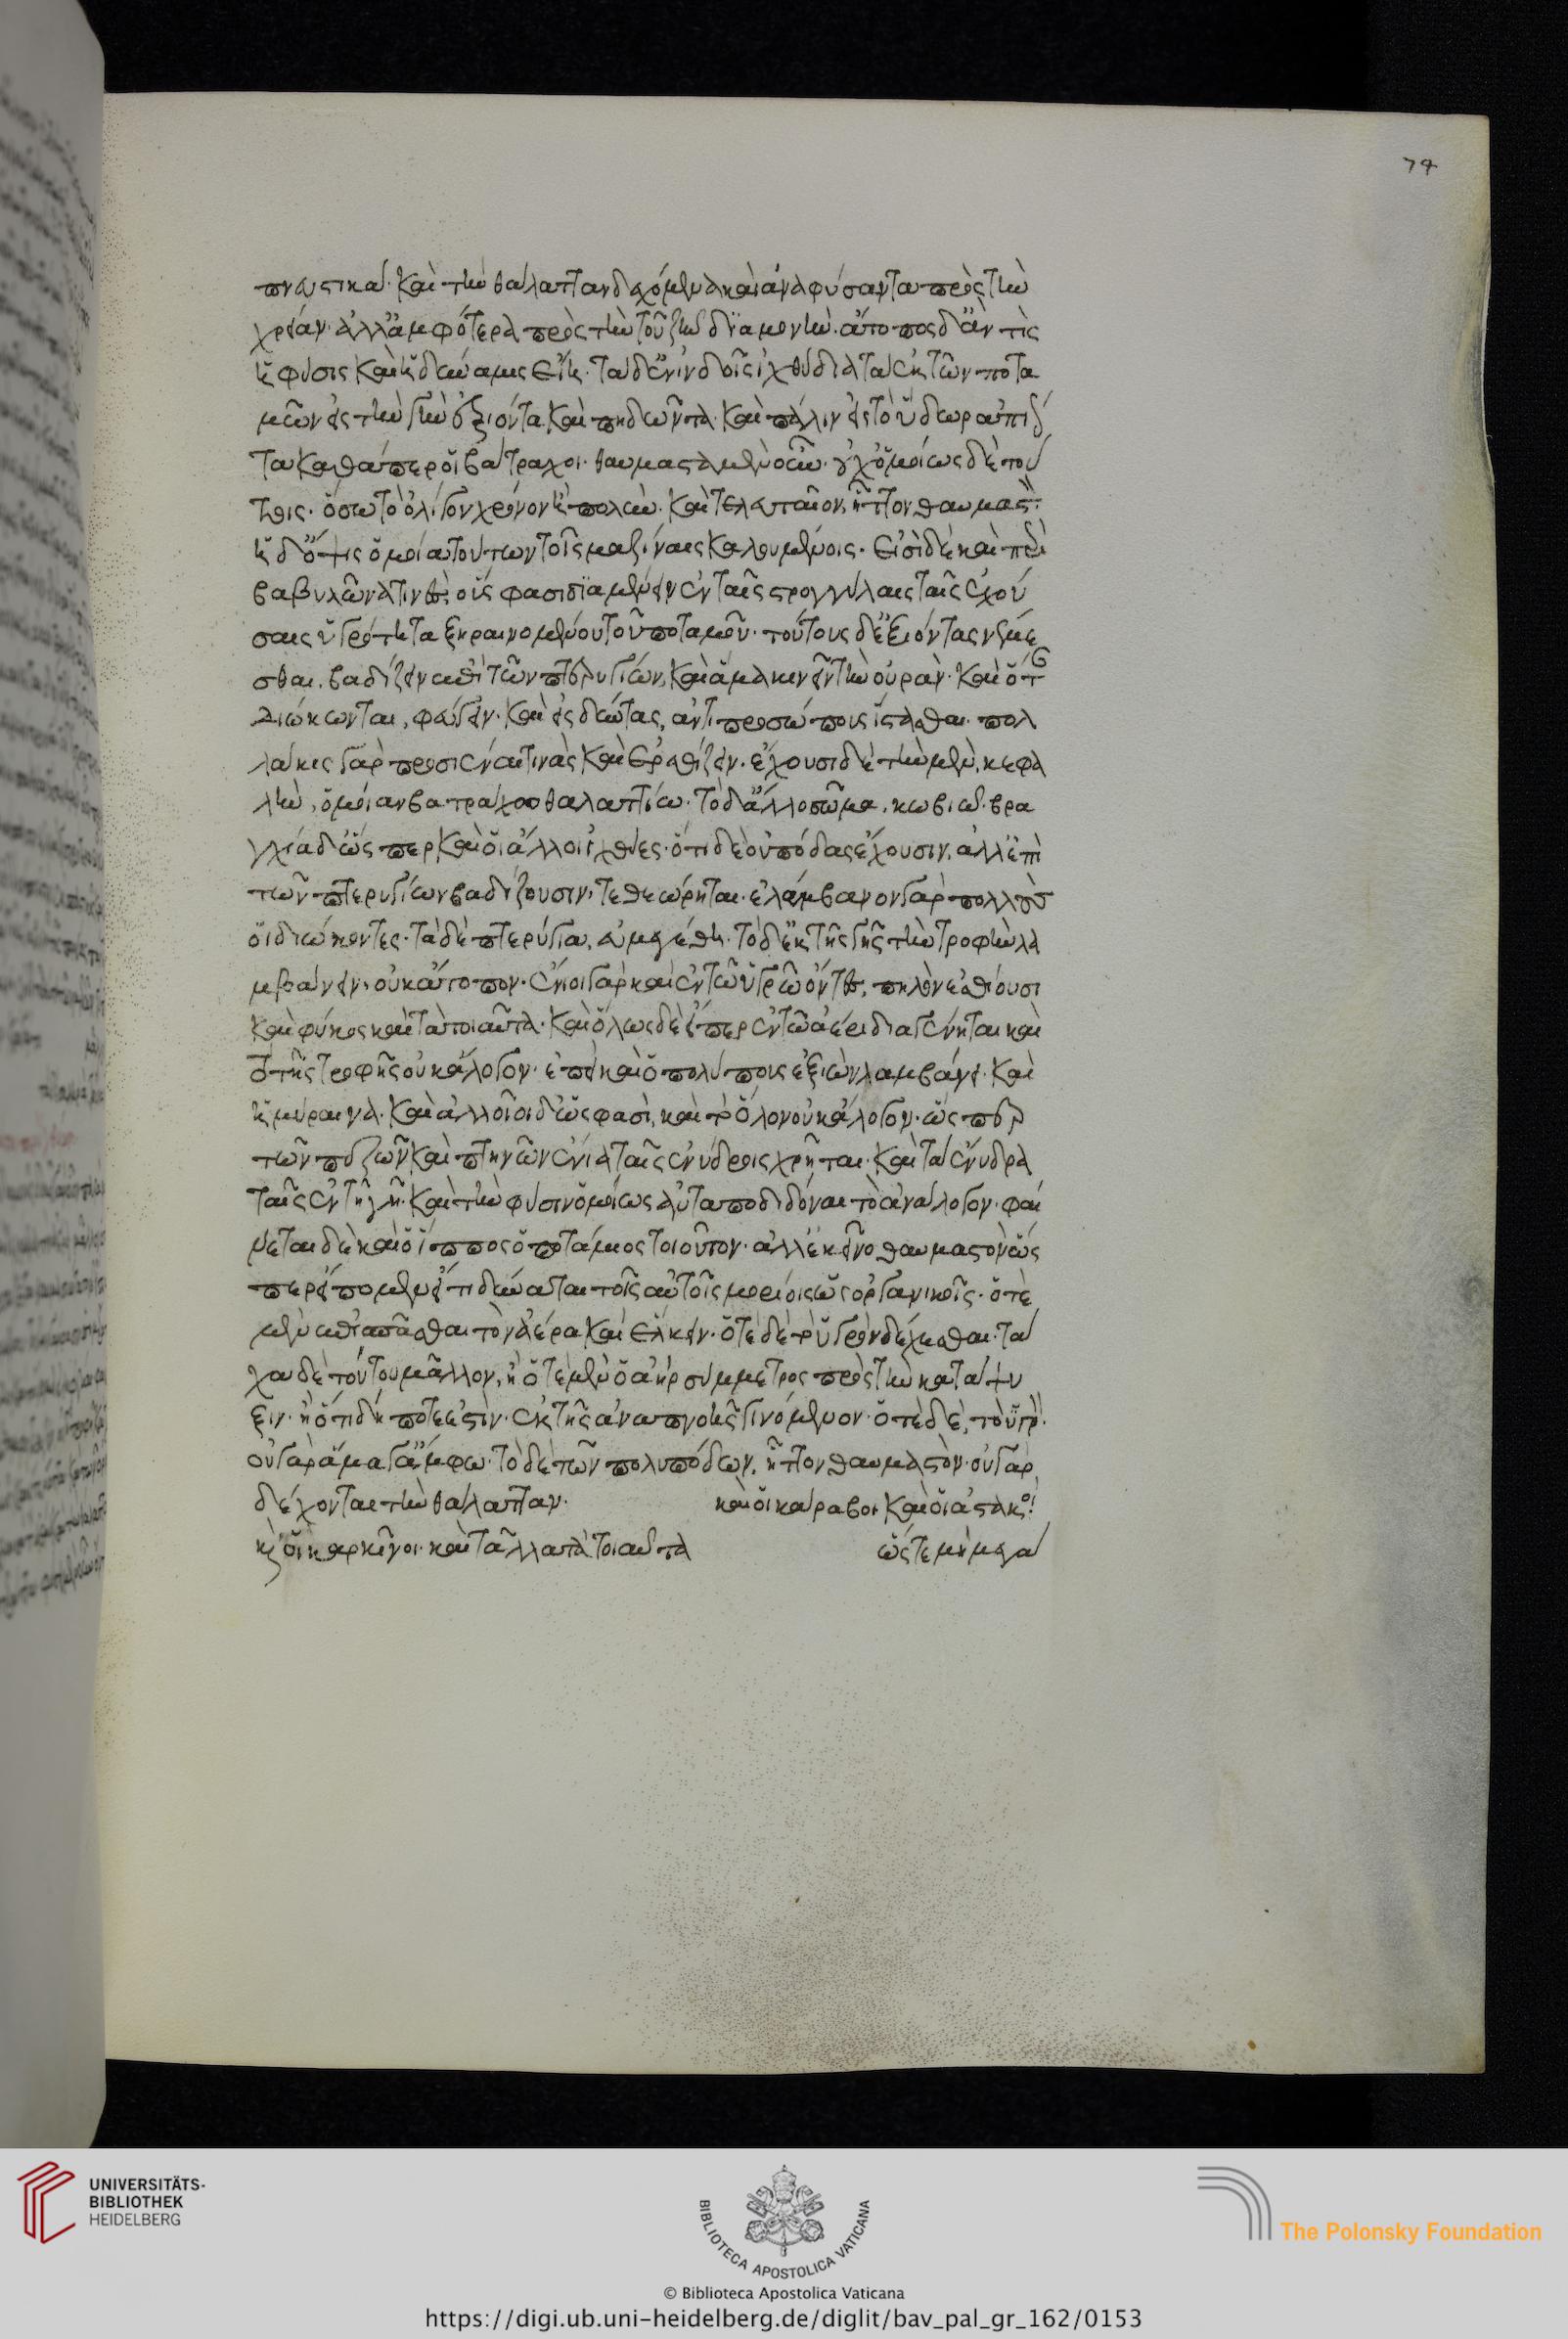 74
πνευστικά· καὶ τὴν θάλατταν δεχόμενα καὶ ἀναφύσαντα πρὸς τὴν
χρείαν· ἀλλ' ἄμφότερα πρὸς τὴν τοῦ ζῆν διαμονήν· ἄτοπος δ' ἂν τὶς
ἡ φύσις καὶ ἡ δύναμις εἴη· τὰ δ' ἐν ἰνδοῖς ἰχθύδια τὰ ἐκ τῶν ποτα
μῶν εἰς τὴν γῆν ἐξιόντα καὶ πηδῶντα· καὶ πάλιν εἰς τὸ ὕδωρ ἀπιόν
τα καθάπερ οἱ βάτραχοι· θαυμαστὰ μὲν οὖν· οὐχ ὁμοίως δὲ τού
τοις· ὅσω τὸ ὀλίγον χρόνον ἢ πολύν· καὶ τελευταῖον, ἧττον θαυμαστόν·
ἡ δ' ὄψις ὁμοία τούτων τοῖς μαξίναις καλουμένοις· εἰσὶ δὲ καὶ περὶ
βαβυλῶνα τινες οὕς φασι διαμένειν ἐν ταῖς τρογγύλαις ταῖς ἐχού
σαις ὑγρότητα ξηραινομένου τοῦ ποταμοῦ· τούτους δ' ἐξιόντας νεμέ
σθαι· βαδίζειν ἐπὶ τῶν πτερυγίων, καὶ ἅμα κινεῖν τὴν οὐράν· καὶ ὅτ
διώκωνται, φεύγειν· καὶ εἰς δύντας, ἀντιπροσώπους ἵστασθαι· πολ
λάκις γὰρ προσιέναι τινὰς καὶ ἐρεθίζειν· ἔχουσι δὲ τὴν μὲν κεφα
λὴν, ὁμοίαν βατράχω θαλαττίω· τὸ δ' ἄλλο σῶμα, κωβιῶ· βρα
γχία δ' ὥς περ καὶ οἱ ἄλλοι ἰχθύες· ὅτι δὲ οὐ πόδας ἔχουσιν, ἀλλ' ἐπὶ
τῶν πτερυγίων βαδίζουσιν, τεθεώρηται· ἐλάμβανον γὰρ πολλοὺς
οἱ διώκοντες· τὰ δὲ πτερύγια, εὐμεγέθη· τὸ δ' ἐκ τῆς γῆς τὴν τροφὴν λα
μβάνειν, οὐκ ἄτοπον· ἔνιοι γὰρ καὶ ἐν τῶ ὑγρῶ ὄντες, πηλὸν ἐσθίουσι
καὶ φύκος καὶ τὰ τοιαῦτα· καὶ ὅλως δὲ εἴπερ ἐν τῶ ἀέρι διαγένηται καὶ
τὸ τῆς τροφῆς οὐκ ἄλογον· ἐπεὶ καὶ ὁ πολύπους ἐξιὼν λαμβάνει· καὶ
ἡ μύραινα· καὶ ἀλλοῖοι δ' ὥς φασὶ, καὶ τὸ ὅλον οὐκ ἄλογον· ὥς περ
τῶν πεζῶν καὶ πτηνῶν ἔνια ταῖς ἐνύδροις χρῆται· καὶ τὰ ἔνυδρα
ταῖς ἐν τῆ γῆ· καὶ τὴν φύσιν ὁμοίως αὐταποδιδόναι τὸ ἀνάλογον· φαί
νεται δὲ καὶ ὁ ἵππος ὁ ποτάμιος τοιοῦτον· ἀλλ' ἐκεῖνο θαυμαστὸν ὥς
περ εἴπομεν εἴ τι δύναται τοῖς αὐτοῖς μορίοις ὡς ὀργανικοῖς· ὁτὲ
μὲν ἐπισπᾶσθαι τὸν ἀέρα καὶ ἕλκειν· ὅτε δὲ τὸ ὑγρὸν δέχεσθαι· τά
χα δὲ τούτου μᾶλλον, ἢ ὅτε μὲν ὁ ἀὴρ σύμμετρος πρὸς τὴν κατάψυ
ξιν· ἢ ὅτι δή ποτε ἐστὶν· ἐκ τῆς ἀναπνοῆς γινόμενον· ὅτε δὲ, τὸ ὑγρόν·
οὐ γὰρ ἅμα γ' ἄμφω· τὸ δὲ τῶν πολυπόδων, ἧττον θαυμαστὸν· οὐ γὰρ
δέχονται τὴν θάλατταν· καὶ οἱ κάραβοι καὶ οἱ ἀστακοὶ
καὶ οἱ καρκῖνοι· καὶ τἆλλα τὰ τοιαῦτα ὥς τε μὴ μετα
UNIVERSITÄTS-
BIBLIOTHEK
HEIDELBERG
BIBLIOTECA APOSTOLICA VATICANA
© Biblioteca Apostolica Vaticana
https://digi.ub.uni-heidelberg.de/diglit/bav_pal_gr_162/0153
The Polonsky Foundation